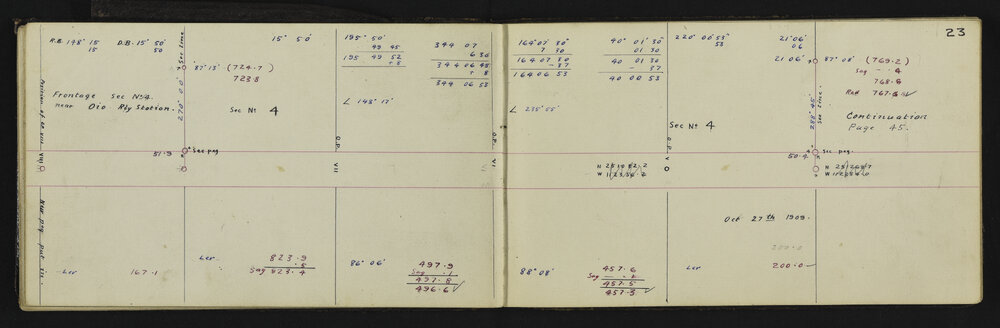 23
R.B. 148° 15
15
D.B. 15° 50'
50
Sec Line
15° 50'
87° 13' (724.7)
723.8
270° 0' 0"
Frontage Sec No 4.
near Dio Rly Station.
Sec No 4
51.9
Sec peg
VIII
Ler 167.1
Ler
823.9
.5
Sag 823.4
195° 50'
49 45
195 49 52
+ 8
344 07
6 30
344 06 45
+ 8
344 06 53
∠ 148° 17'
O.P. VII
O.P. VI
86° 06'
497.9
Sag .1
497.8
496.6 ✓
164° 07' 30"
7 30
164 07 30
- 37
164 06 53
40° 01' 30"
01 30
40 01 30
- 37
40 00 53
∠ 235° 55'
220° 00' 53"
53
Sec No 4
O.P. V
N 25182.2
W 112336.8
88° 08'
457.6
Sag
457.5
457.3 ✓
Ler
21° 06'
06
21 06'
87° 08' (769.2)
Sag .4
768.8
Red 767.8
288° 45'
Sec Line.
Continuation
Page 45.
50.4
Sec peg.
Oct 27th 1909.
200.0
200.0